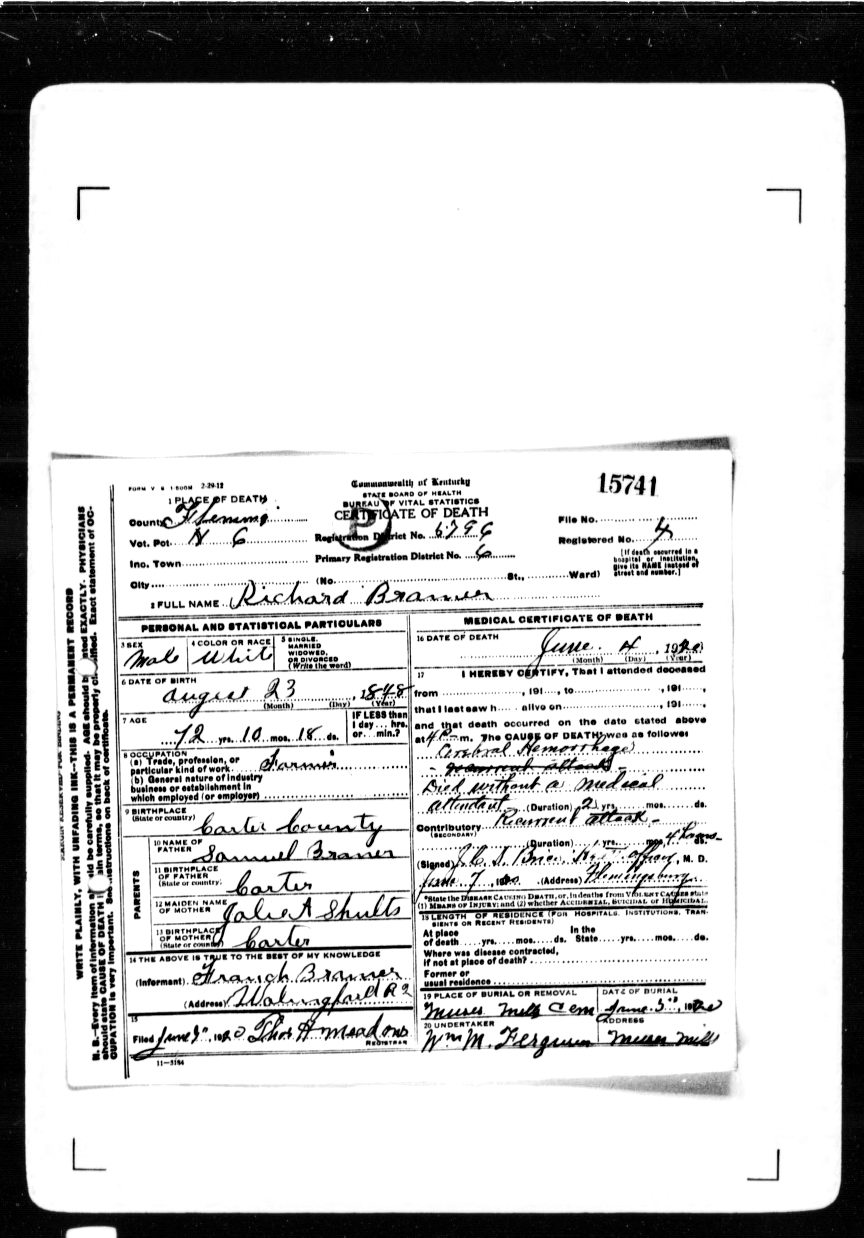 FORM V S 1-500M 2-29-12
Commonwealth of Kentucky
STATE BOARD OF HEALTH
BUREAU OF VITAL STATISTICS
CERTIFICATE OF DEATH
15741
1 PLACE OF DEATH
County Fleming
Vot. Pct. N 6
Inc. Town
City (No. St., Ward)
P
Registration District No. 6796
Primary Registration District No. 6
File No.
Registered No. 4
[If death occurred in a hospital or institution, give its NAME instead of street and number.]
2 FULL NAME Richard Bramer
PERSONAL AND STATISTICAL PARTICULARS
3 SEX Male
4 COLOR OR RACE White
5 SINGLE, MARRIED WIDOWED, OR DIVORCED (Write the word)
6 DATE OF BIRTH
August 23, 1848
(Month) (Day) (Year)
7 AGE
72 yrs. 10 mos. 18 ds.
IF LESS than 1 day... hrs. or... min.?
8 OCCUPATION
(a) Trade, profession, or particular kind of work Farmer
(b) General nature of industry business or establishment in which employed (or employer)
9 BIRTHPLACE
(State or country)
Carter County
PARENTS
10 NAME OF FATHER Samuel Bramer
11 BIRTHPLACE OF FATHER (State or country) Carter
12 MAIDEN NAME OF MOTHER Shults
13 BIRTHPLACE OF MOTHER (State or country) Carter
14 THE ABOVE IS TRUE TO THE BEST OF MY KNOWLEDGE
(Informant) Bramer
(Address) Wallingford R2
15
Filed June 5", 1920 Thos H Meadows
REGISTRAR
11-3184
MEDICAL CERTIFICATE OF DEATH
16 DATE OF DEATH
June 4, 1920
(Month) (Day) (Year)
17 I HEREBY CERTIFY, That I attended deceased
from , 191 , to , 191 ,
that I last saw h alive on , 191 ,
and that death occurred on the date stated above
at 4 P m. The CAUSE OF DEATH was as follows:
Cerebral Hemorrhage
recurrent attack
Died without a medical
attendant (Duration) 2 yrs. mos. ds.
Contributory Recurrent attack
(SECONDARY)
(Duration) yrs. mos. 4 hours ds.
(Signed) , M. D.
June 7, 1920 (Address) Flemingsburg
*State the DISEASE CAUSING DEATH, or, in deaths from VIOLENT CAUSES state (1) MEANS OF INJURY; and (2) whether ACCIDENTAL, SUICIDAL or HOMICIDAL.
18 LENGTH OF RESIDENCE (FOR HOSPITALS, INSTITUTIONS, TRANSIENTS OR RECENT RESIDENTS)
At place of death yrs. mos. ds. In the State yrs. mos. ds.
Where was disease contracted,
if not at place of death?
Former or
usual residence
19 PLACE OF BURIAL OR REMOVAL
Muses Mills Cem
DATE OF BURIAL
June 5", 1920
20 UNDERTAKER
Wm M. Ferguson
ADDRESS
Muses Mills
MARGIN RESERVED FOR BINDING
WRITE PLAINLY, WITH UNFADING INK--THIS IS A PERMANENT RECORD
N. B.--Every item of information should be carefully supplied. AGE should be stated EXACTLY. PHYSICIANS
should state CAUSE OF DEATH in plain terms, so that it may be properly classified. Exact statement of OC-
CUPATION is very important. See instructions on back of certificate.